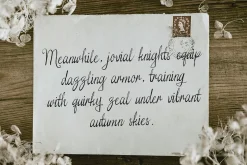 Meanwhile, jovial knights equip
dazzling armor, training
with quirky zeal under vibrant
autumn skies.